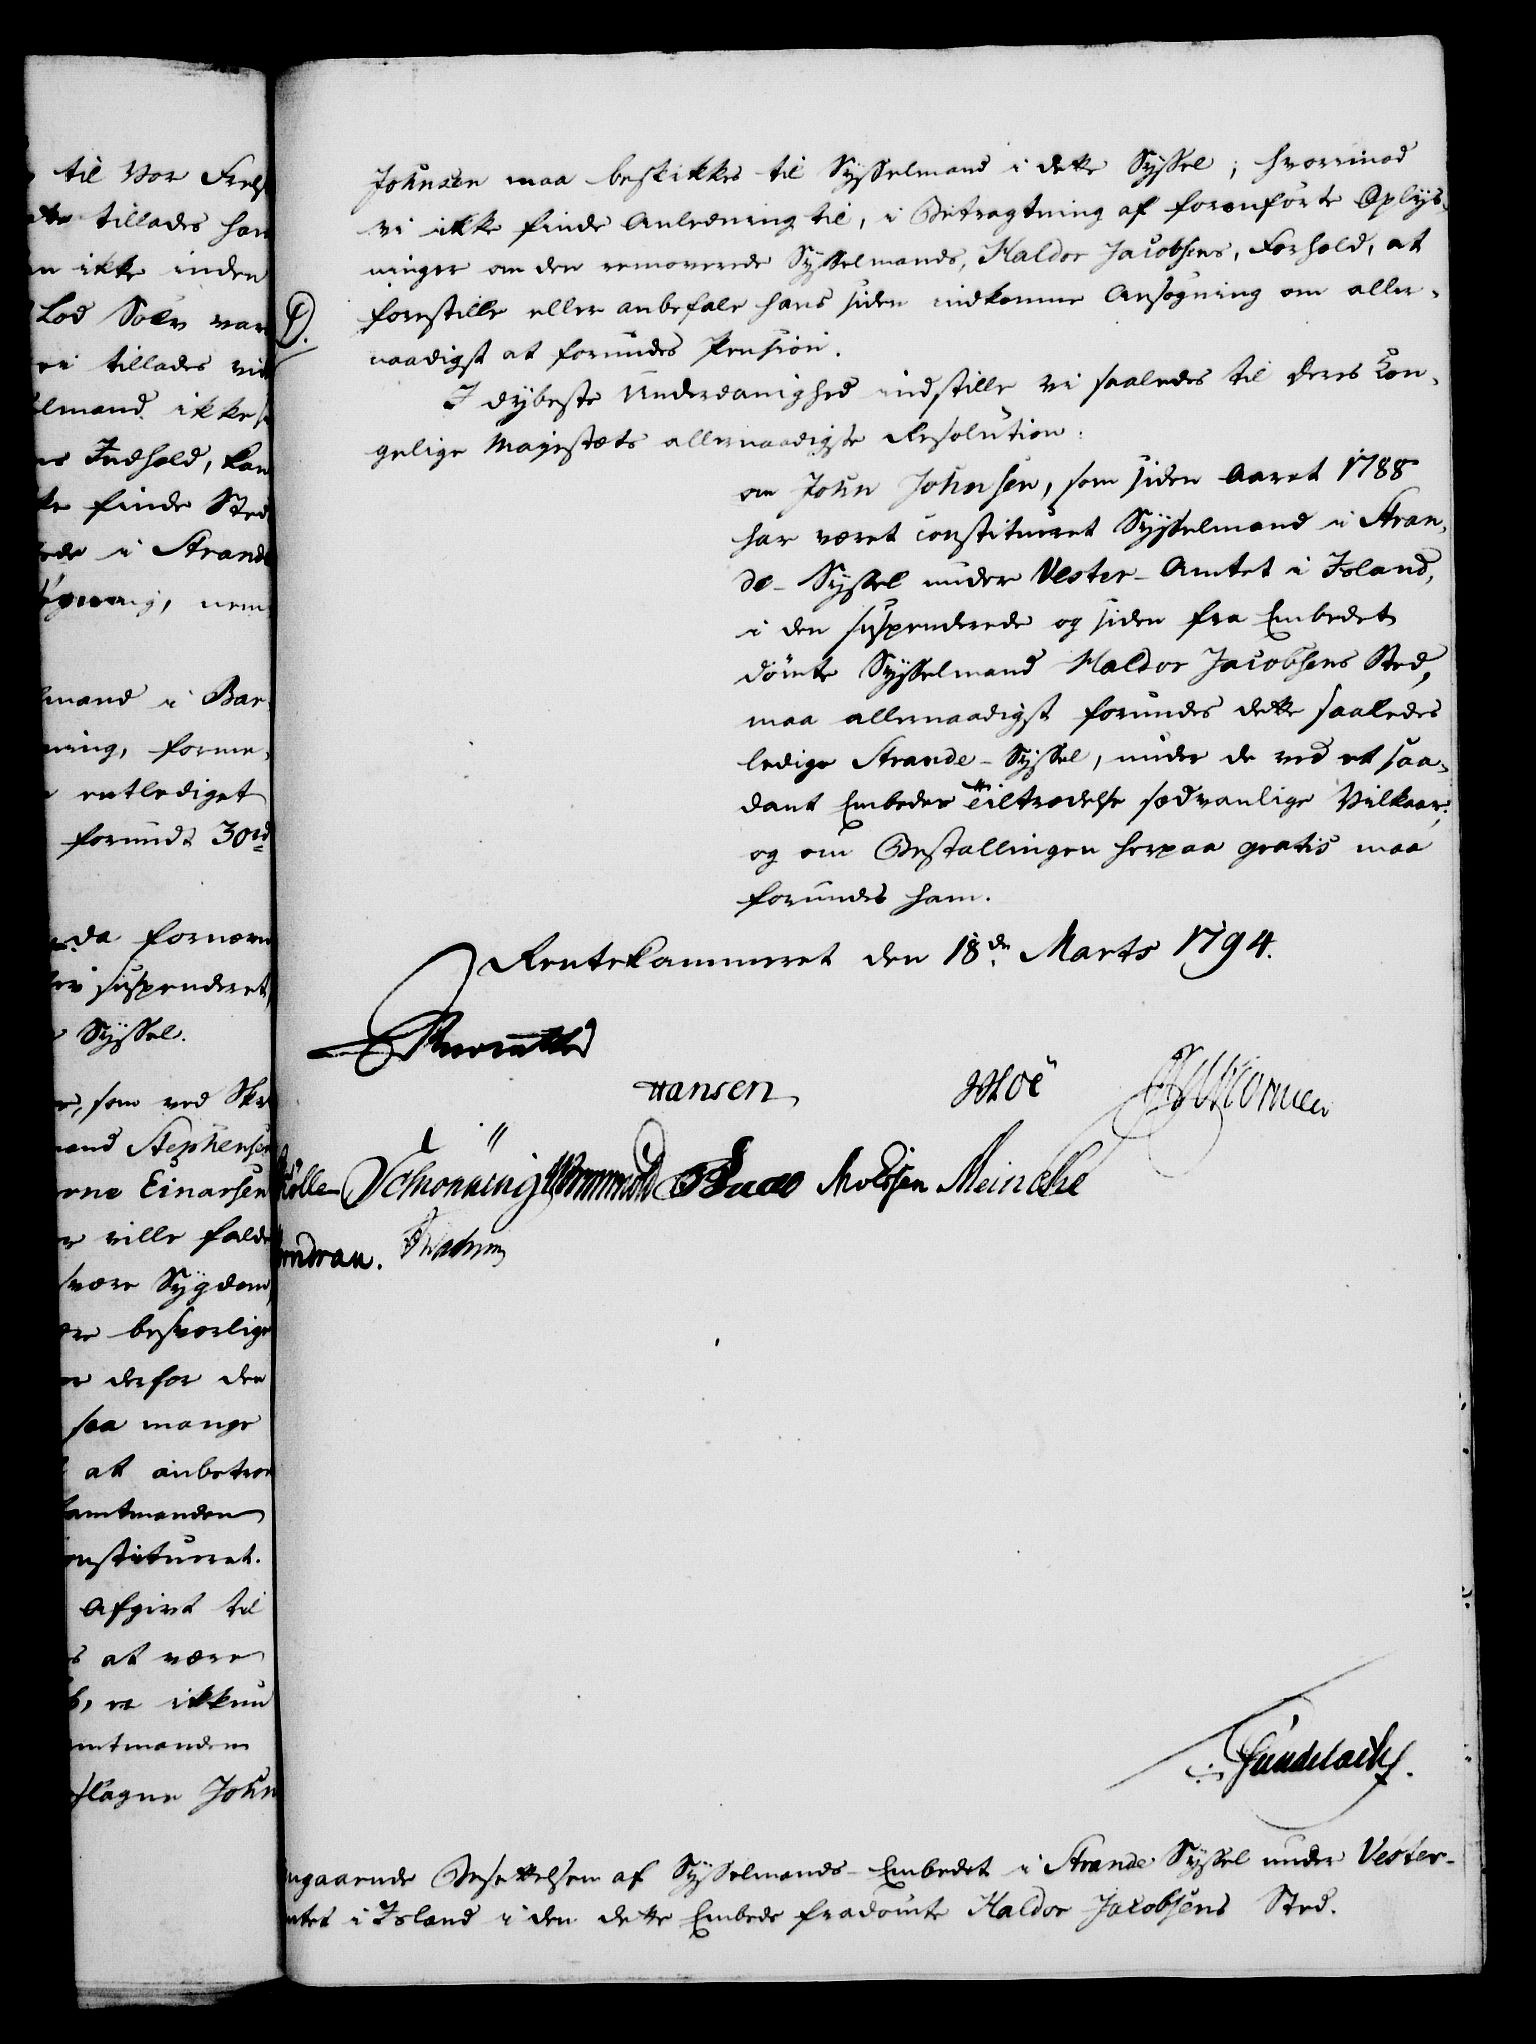 til Vor Frels
tillades han
ikke inden
Lod Sølv var
tillades vid
ikke
Indhold, kan
finde Sted
i Strande
nem
mand i Bar-
ning, forme-
entlediget
forundt 30 rd
da fornævn
suspenderet,
Syssel.
som ved Skr
mand Stephensen
Einarsen
ville falde
svære Sygdom,
besværlige
derfor den
saa mange
at anbetroe
amtmanden
onstitueret.
Afgivt til
at være
ikkun
mtmanden
slagne John
Johnsen maa beskikkes til Sysselmand i dette Syssel; hvorimod
vi ikke finde Anledning til, i Betragtning af foranførte Oplys-
ninger om den removerede Sysselmands, Haldor Jacobsens, Forhold, at
forestille eller anbefale hans siden indkomne Ansøgning om aller-
naadigst at forundes Pension.
I dybeste Underdanighed indstille vi saaledes til Deres Kon-
gelige Majestæts allernaadigste Resolution:
om John Johnsen, som siden Aaret 1788
har været constitueret Sysselmand i Stran-
de-Syssel under Vester-Amtet i Island,
i den suspenderede og siden fra Embedet
dømte Sysselmand Haldor Jacobsens Sted,
maa allernaadigst forundes dette saaledes
ledige Strande-Syssel, under de ved et saa-
dant Embedes Tiltrædelse sædvanlige Vilkaar;
og om Bestallingen herpaa gratis maa
forundes ham.
Rentekammeret den 18de Marts 1794.
Hansen
Schönning Wormskiold Molssen Meincke
Gundelach.
ngaaende Besættelsen af Sysselmands-Embedet i Strande Syssel under Vester-
mtet i Island i den dette Embede fradømte Haldor Jacobsens Sted.